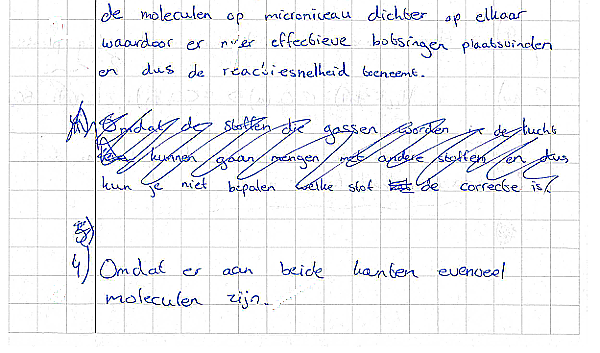 de moleculen op microniveau dichter op elkaar
waardoor er meer effectieve botsingen plaatsvinden
en dus de reactiesnelheid toeneemt.
Omdat de stoffen die gassen worden in de lucht
kunnen gaan mengen met andere stoffen en dus
kun je niet bepalen welke stof de correcte is.
4) Omdat er aan beide kanten evenveel
moleculen zijn.